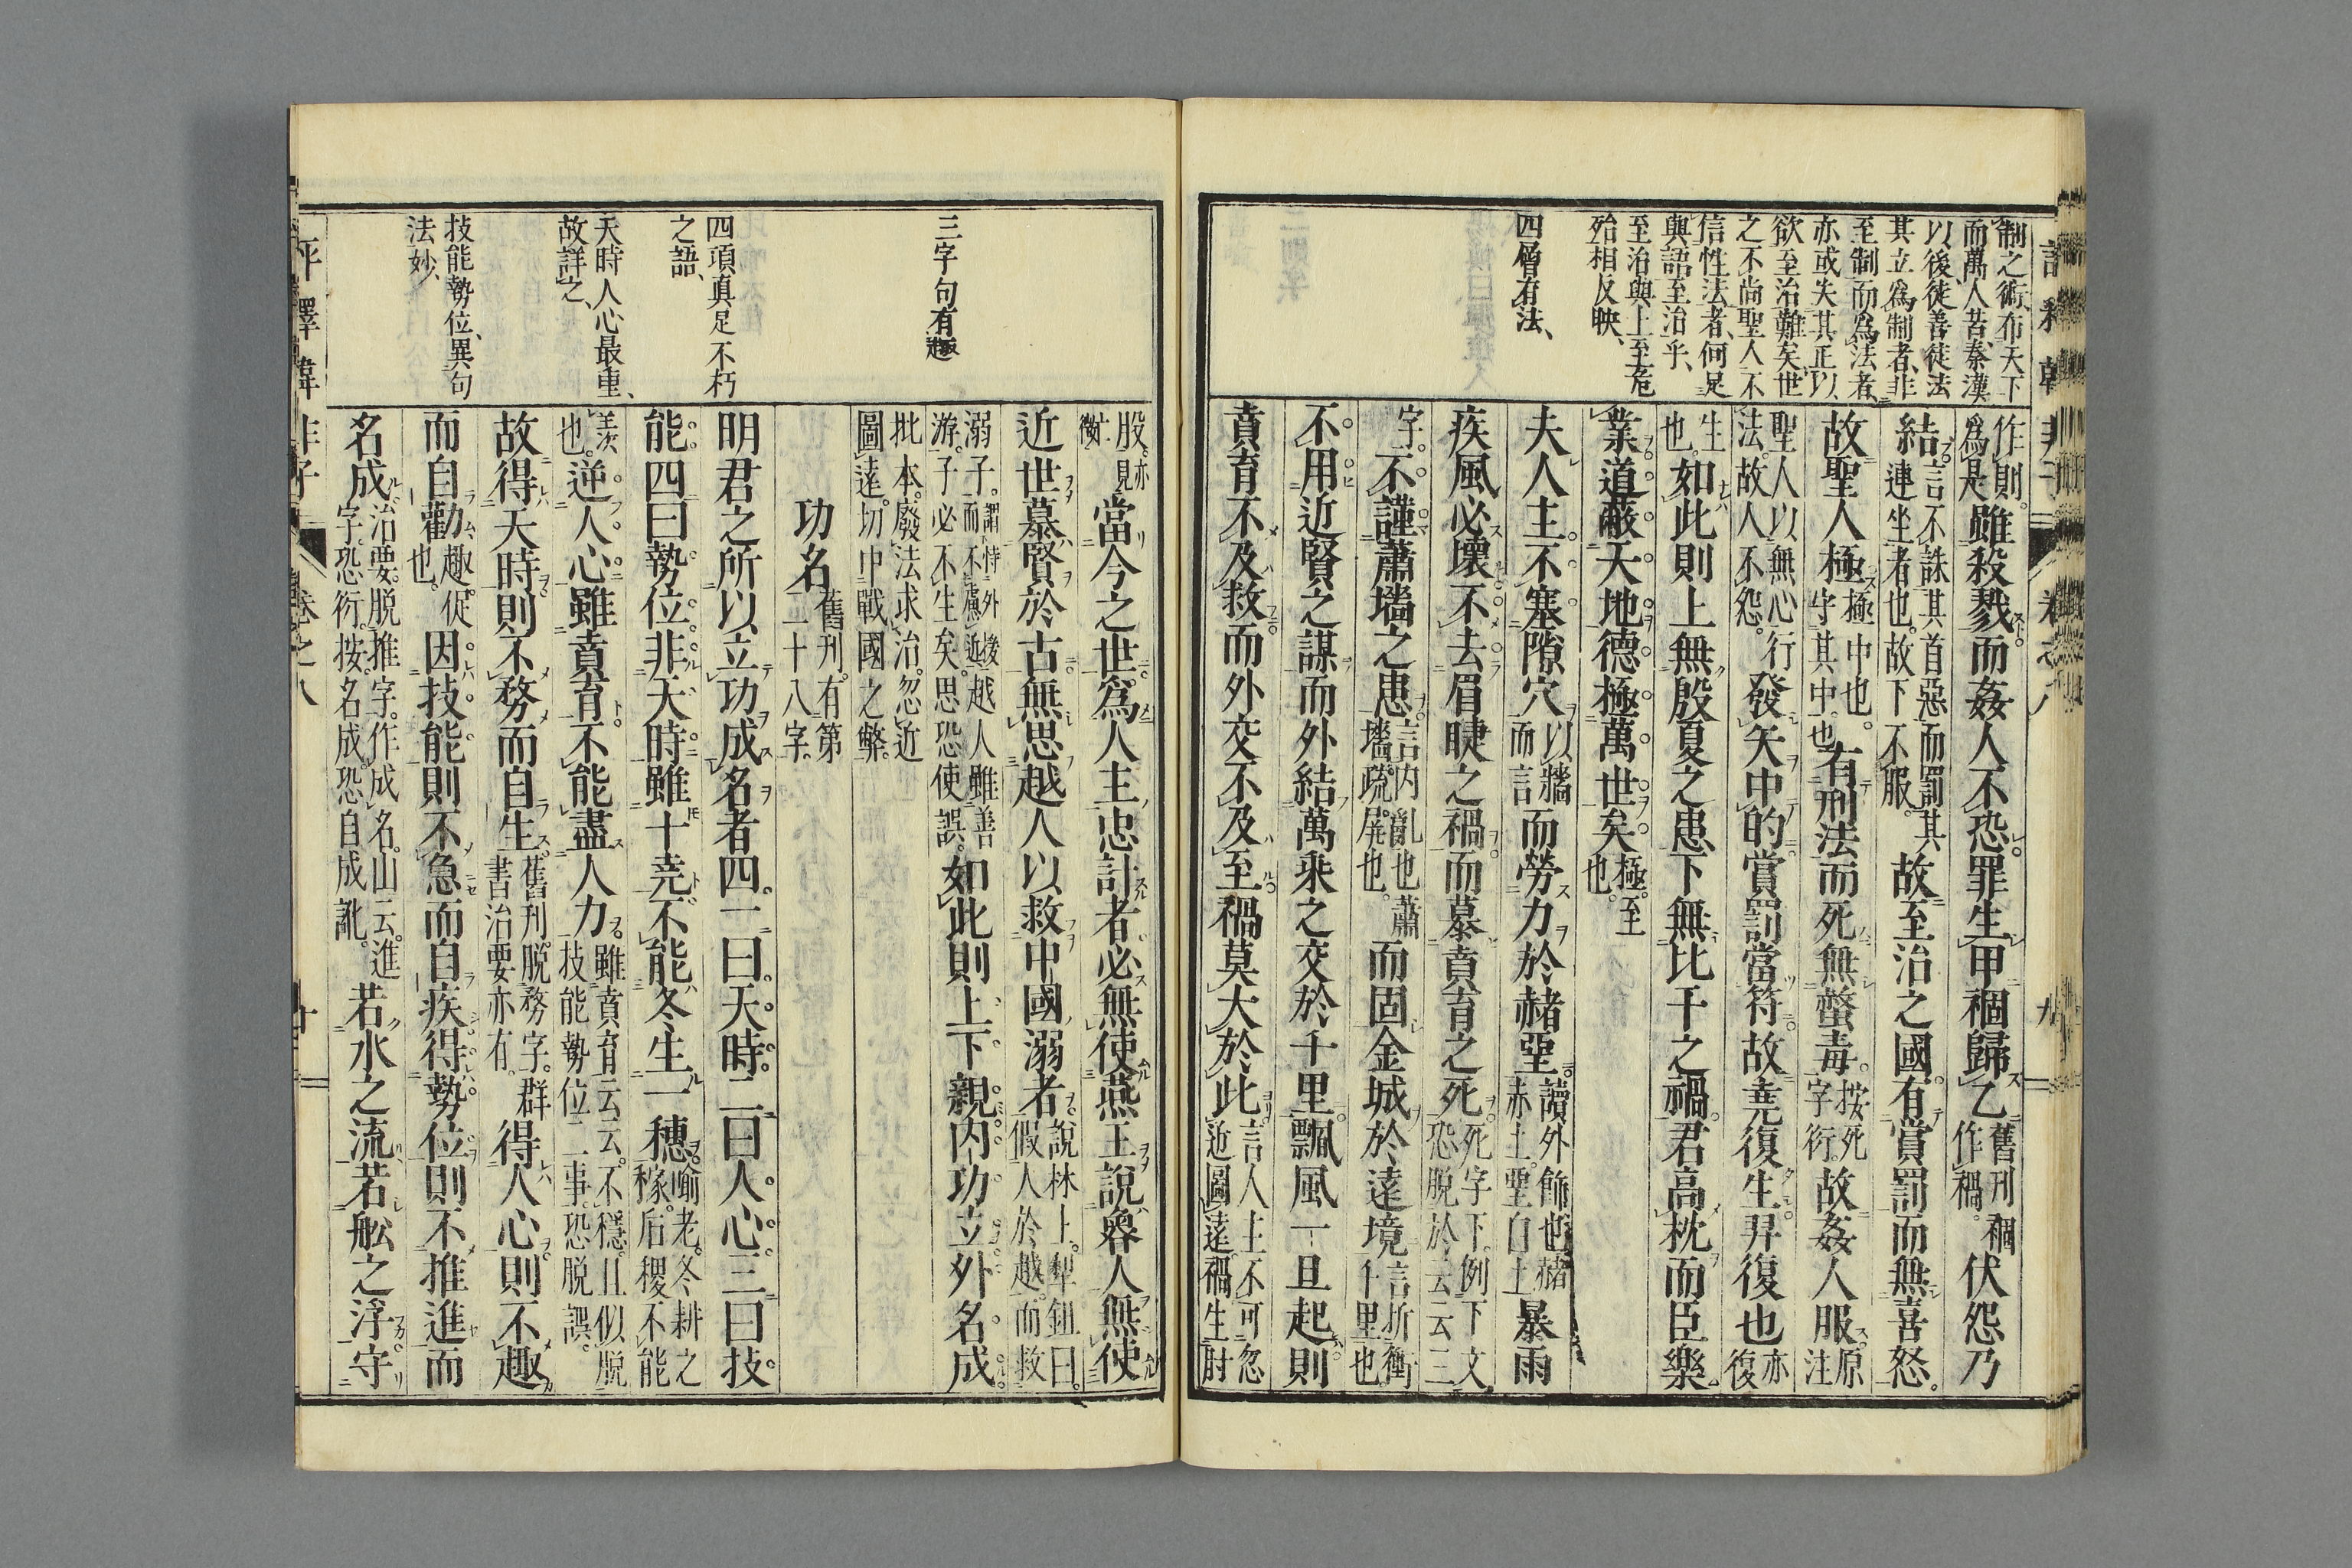 制之術、布天下
而萬人苦、秦漢
以後、徒善徒法
其立為制者、非
至制而為法者、
亦或失其正、以
欲至治難矣、世
之不尚聖人、不
信性法者、何足
與語至治乎、
至治與上至危
殆相反映、
四層有法、
作則。為是。雖殺戮而姦人不恐罪生甲禍歸乙舊刊禍作禍。伏怨乃
結言不誅其首惡而罰其連坐者也。故下不服。故至治之國有賞罰而無喜怒。
故聖人極極中也。守其中也。有刑法而死無螫毒。按死字衍。故姦人服。原注
聖人以無心行法。故人不怨。發矢中的賞罰當符故堯復生羿復也亦復
生也。如此則上無殷夏之患下無比干之禍君高枕而臣樂
業道蔽天地德極萬世矣極。至也。
夫人主不塞隙穴以牆而言而勞力於赭堊讀外飾也赭赤土。堊白土暴雨
疾風必壞不去眉睫之禍而慕賁育之死死字下。例下文恐脫於云云三
字。不謹蕭墻之患言內亂也蕭墻。疏屏也。而固金城於遠境言折衝千里也。
不用近賢之謀而外結萬乘之交於千里飄風一旦起則
賁育不及救而外交不及至禍莫大於此言人主不可忽近圖遠。禍生肘
三字句有趣
四項真足不朽
之語、
天時人心最重、
故詳之、
技能勢位、異句
法妙、
股。亦見當今之世為人主忠計者必無使燕王說魯人無使
近世慕賢於古無思越人以救中國溺者說林上。犁鉏曰。假人於越。而救
溺子。游。子必不生矣。謂恃外而不慮近後越人雖善思恐使誤。如此則上下親內功立外名成
批本。廢法求治。忽近圖遠。切中戰國之弊。
功名舊刊。有第二十八字。
明君之所以立功成名者四一曰天時二曰人心三曰技
能四曰勢位非天時雖十堯不能冬生一穗喻老。冬耕之稼。后稷不能
羨也。逆人心雖賁育不能盡人力雖賁育云云。不穩。且似脫技能勢位二事。恐脫誤。
故得天時則不務而自生舊刊。脫務字。群書治要亦有。得人心則不趣
而自勸趣。促也。因技能則不急而自疾得勢位則不推進而
名成治要。脫推字。作成名。山云。進字。恐衍。按。名成。恐自成訛。若水之流若舩之浮守
評釋韓非子 卷之八 十